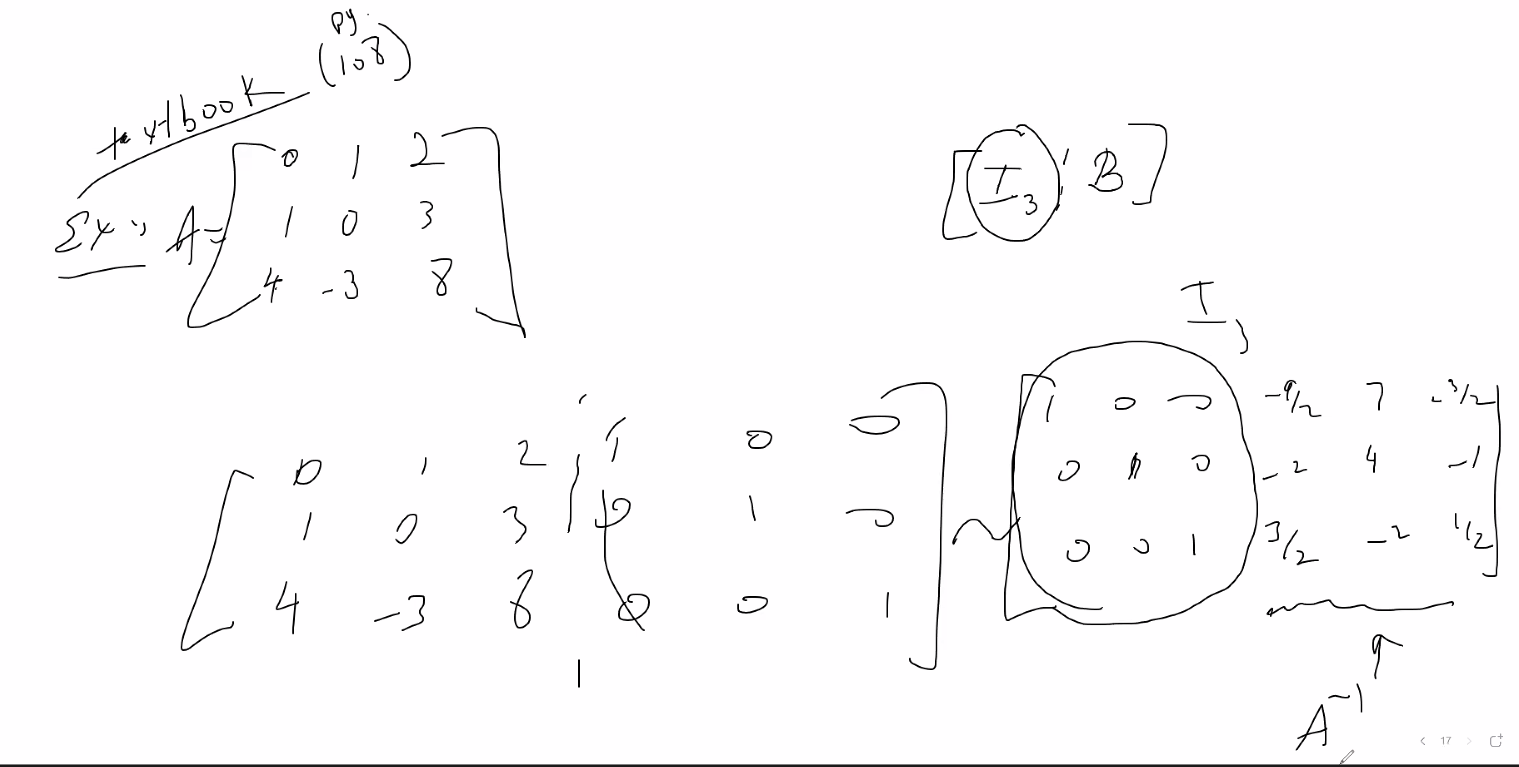 textbook
pg.
(108)
Ex: A = [ 0 1 2
1 0 3
4 -3 8 ]
[ I3 ¦ B ]
I3
[ 0 1 2 ¦ 1 0 0
1 0 3 ¦ 0 1 0
4 -3 8 ¦ 0 0 1 ]
~
[ 1 0 0 -9/2 7 -3/2
0 1 0 -2 4 -1
0 0 1 3/2 -2 1/2 ]
A-1
17